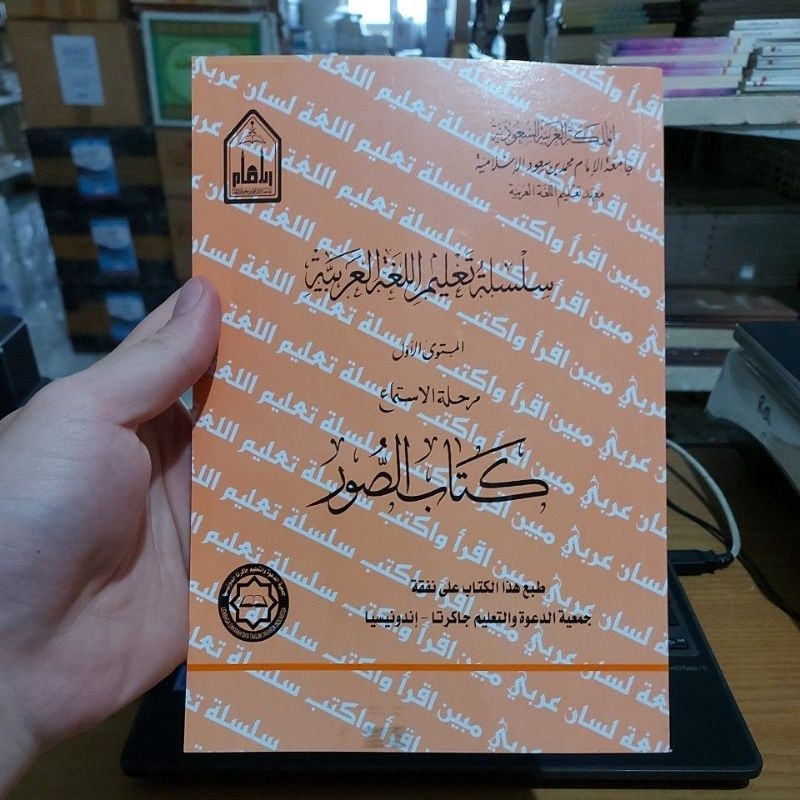 المملكة العربية السعودية
جامعة الإمام محمد بن سعود الإسلامية
معهد تعليم اللغة العربية
سلسلة تعليم اللغة العربية
المستوى الأول
مرحلة الاستماع
كتاب الصور
طبع هذا الكتاب على نفقة
جمعية الدعوة والتعليم جاكرتا - إندونيسيا
سلسلة تعليم اللغة لسان عربي مبين اقرأ واكتب